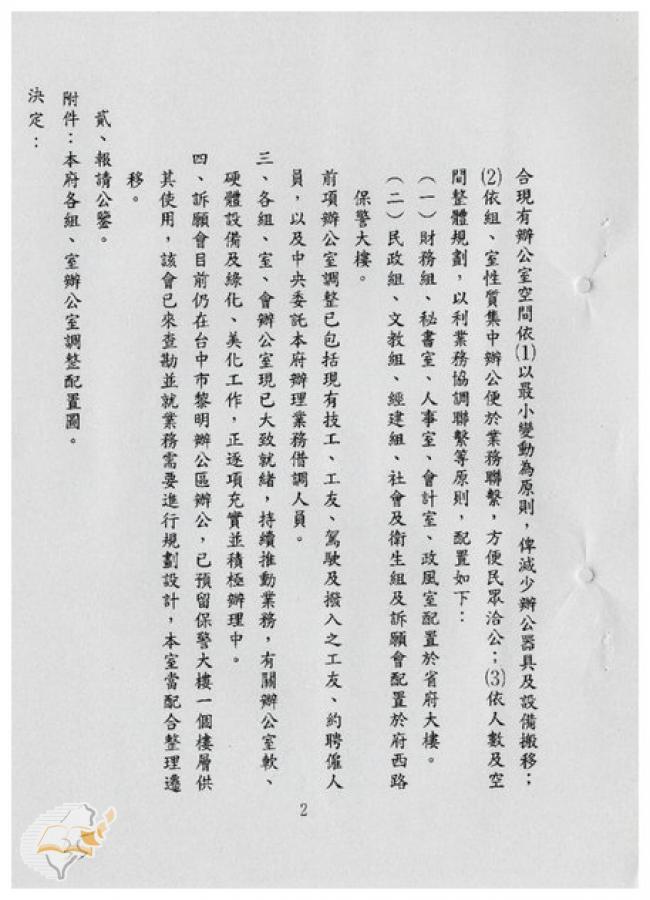 合現有辦公室空間依⑴以最小變動為原則，俾減少辦公器具及設備搬移；
⑵依組、室性質集中辦公便於業務聯繫，方便民眾洽公；⑶依人數及空
間整體規劃，以利業務協調聯繫等原則，配置如下：
（一）財務組、秘書室、人事室、會計室、政風室配置於省府大樓。
（二）民政組、文教組、經建組、社會及衛生組及訴願會配置於府西路
保警大樓。
前項辦公室調整已包括現有技工、工友、駕駛及撥入之工友、約聘僱人
員，以及中央委託本府辦理業務借調人員。
三、各組、室、會辦公室現已大致就緒，持續推動業務，有關辦公室軟、
硬體設備及綠化、美化工作，正逐項充實並積極辦理中。
四、訴願會目前仍在台中市黎明辦公區辦公，已預留保警大樓一個樓層供
其使用，該會已來查勘並就業務需要進行規劃設計，本室當配合整理遷
移。
貳、報請公鑒。
附件：本府各組、室辦公室調整配置圖。
決定：
2